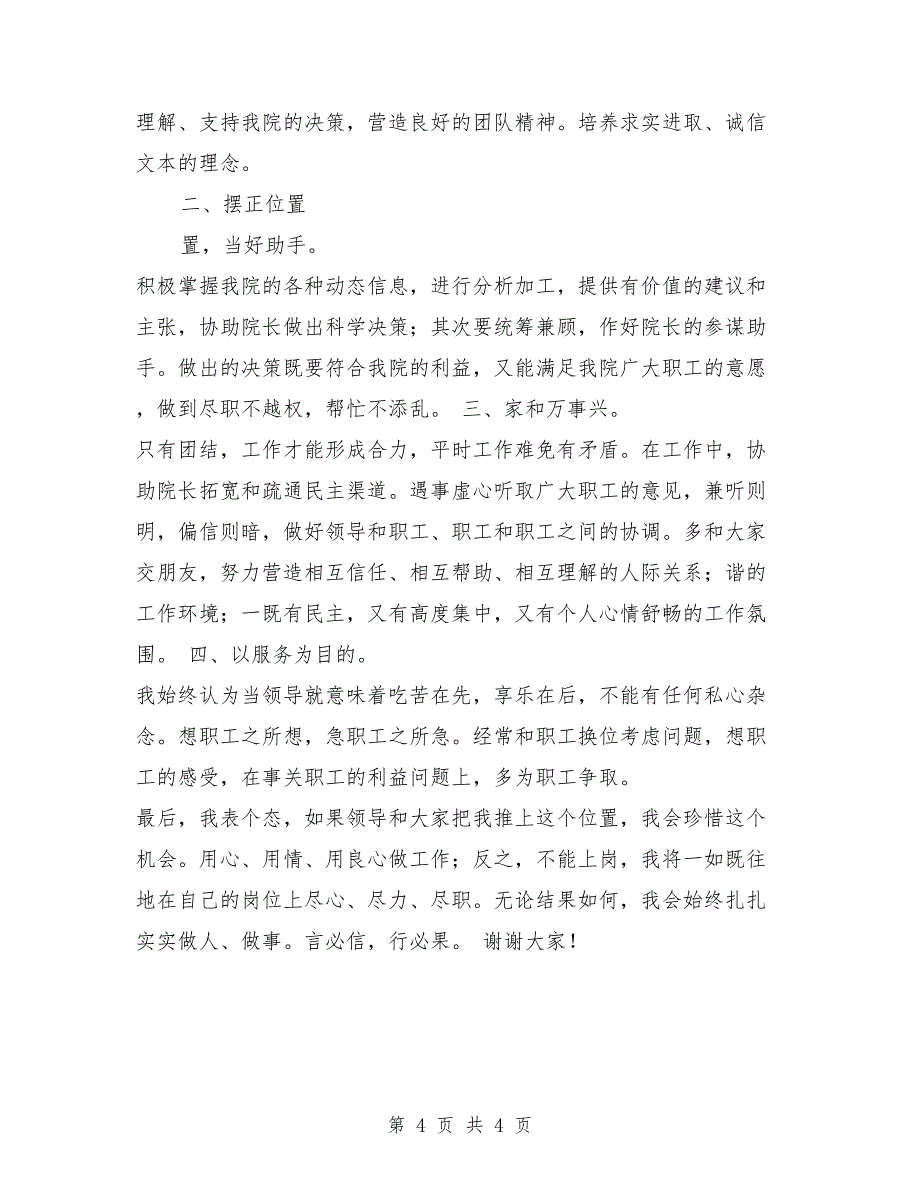 理解、支持我院的决策，营造良好的团队精神。培养求实进取、诚信
文本的理念。
二、摆正位置
置，当好助手。
积极掌握我院的各种动态信息，进行分析加工，提供有价值的建议和
主张，协助院长做出科学决策；其次要统筹兼顾，作好院长的参谋助
手。做出的决策既要符合我院的利益，又能满足我院广大职工的意愿
，做到尽职不越权，帮忙不添乱。 三、家和万事兴。
只有团结，工作才能形成合力，平时工作难免有矛盾。在工作中，协
助院长拓宽和疏通民主渠道。遇事虚心听取广大职工的意见，兼听则
明，偏信则暗，做好领导和职工、职工和职工之间的协调。多和大家
交朋友，努力营造相互信任、相互帮助、相互理解的人际关系；谐的
工作环境；一既有民主，又有高度集中，又有个人心情舒畅的工作氛
围。 四、以服务为目的。
我始终认为当领导就意味着吃苦在先，享乐在后，不能有任何私心杂
念。想职工之所想，急职工之所急。经常和职工换位考虑问题，想职
工的感受，在事关职工的利益问题上，多为职工争取。
最后，我表个态，如果领导和大家把我推上这个位置，我会珍惜这个
机会。用心、用情、用良心做工作；反之，不能上岗，我将一如既往
地在自己的岗位上尽心、尽力、尽职。无论结果如何，我会始终扎扎
实实做人、做事。言必信，行必果。 谢谢大家！
第 4 页 共 4 页